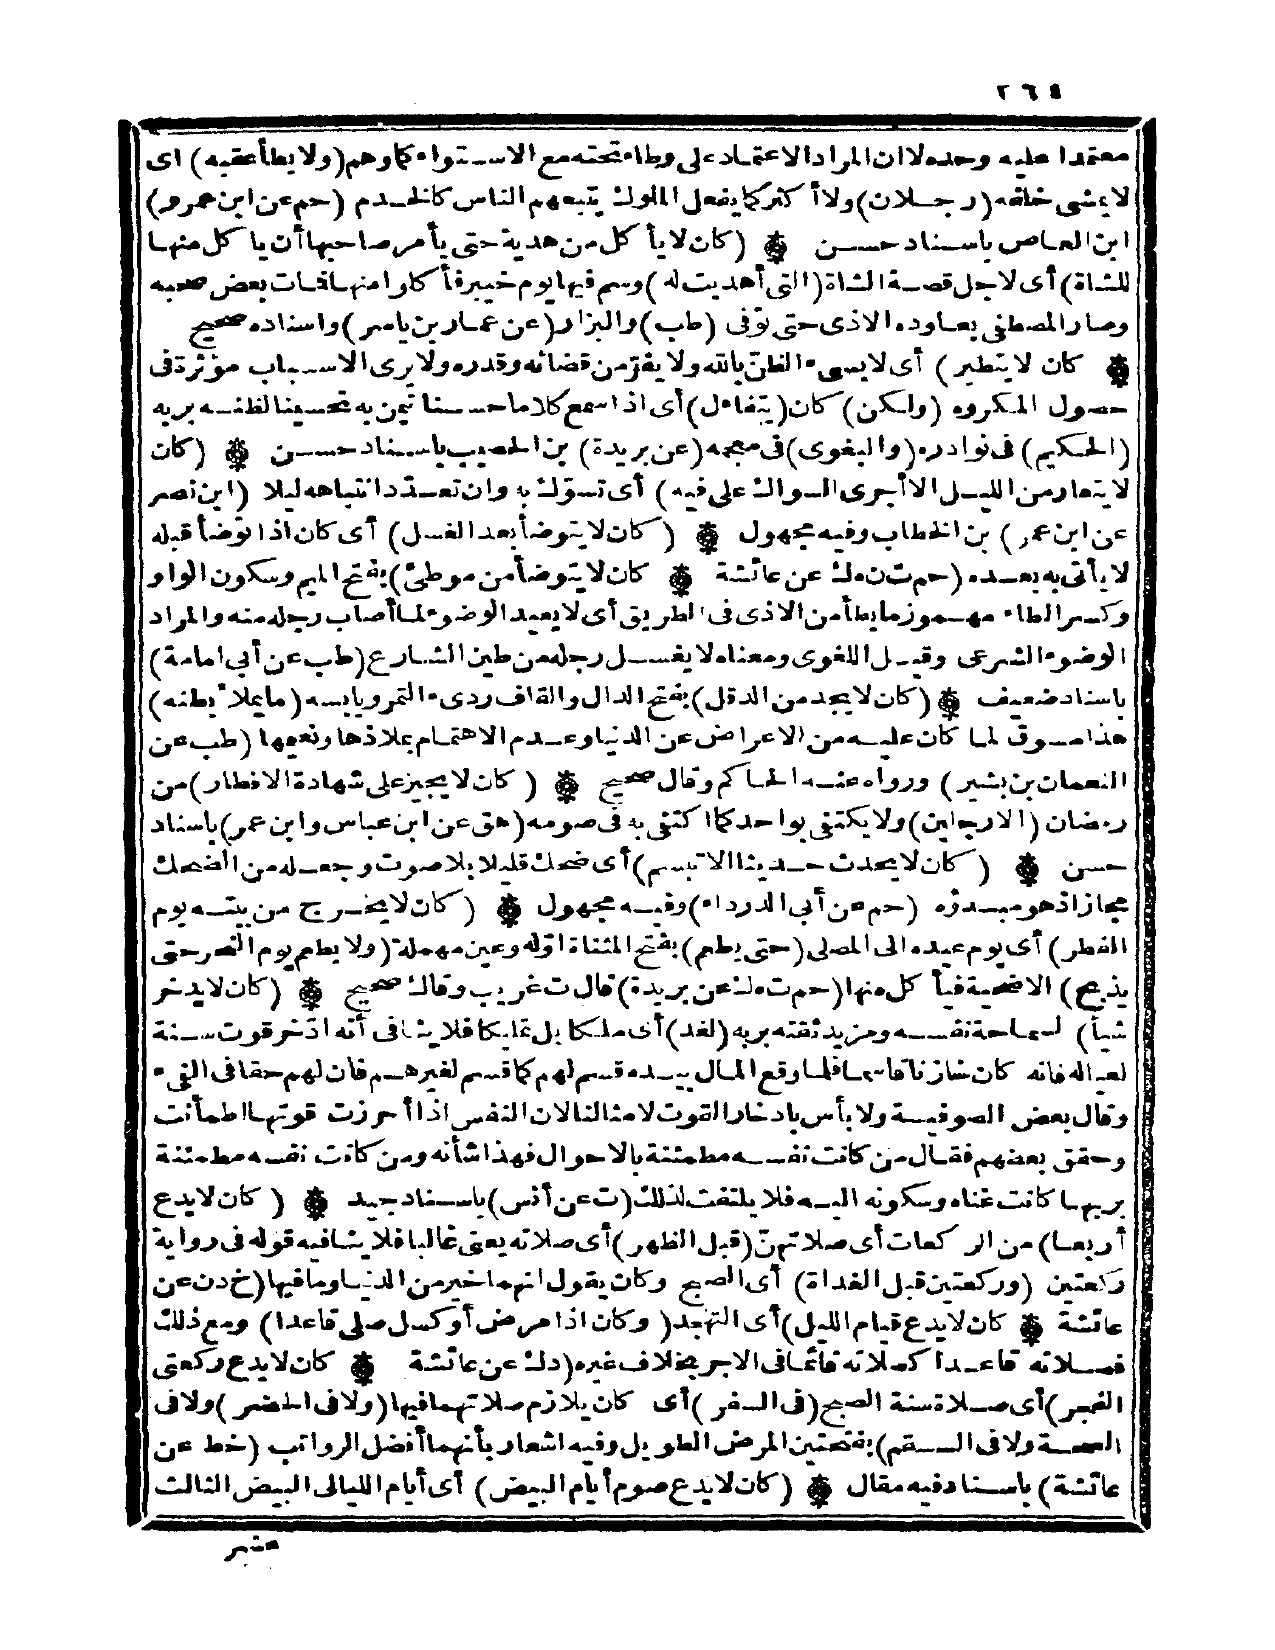 معتمدا عليه وحده لا ان المراد الاعتماد على وطاء تحته مع الاستواء كما وهم (ولا يطأ عقبه) اى
لا يمشى خلفه (رجلان) ولا أكثر كما يفعل الملوك يتبعهم الناس كالخدم (حم عن ابن عمرو)
ابن العاص باسناد حسن (كان لا يأكل من هدية حتى يأمر صاحبها أن يأكل منها
للشاة) أى لاجل قصة الشاة (التى أهديت له) وسم فيها يوم خيبر فأكلوا منها فمات بعض صحبه
وصار المصطفى يعاوده الاذى حتى توفى (طب) والبزار (عن عمار بن ياسر) واسناده صحيح
كان لا يتطير) أى لا يسىء الظن بالله ولا يفر من قضائه وقدره ولا يرى الاسباب مؤثرة فى
حصول المكروه (ولكن) كان (يتفاءل) أى اذا سمع كلاما حسنا تيمن به تحسينا لظنه بربه
(الحكيم) فى نوادره (والبغوى) فى معجمه (عن بريدة) بن الحصيب باسناد حسن (كان
لا يتعار من الليل الا أجرى السواك على فيه) أى تسوك به وان تعدد انتباهه ليلا (ابن نصر
عن ابن عمر) بن الخطاب وفيه مجهول (كان لا يتوضأ بعد الغسل) أى كان اذا توضأ قبله
لا يأتى به بعده (حم ت ن ه ك عن عائشة كان لا يتوضأ من موطئ) بفتح الميم وسكون الواو
وكسر الطاء مهموز ما يطأ من الاذى فى الطريق أى لا يعيد الوضوء لما أصاب رجله منه والمراد
الوضوء الشرعى وقيل اللغوى ومعناه لا يغسل رجله من طين الشارع (طب عن أبى امامة)
باسناد ضعيف (كان لا يجد من الدقل) بفتح الدال والقاف ردىء التمر ويابسه (ما يملأ بطنه)
هذا مسوق لما كان عليه من الاعراض عن الدنيا وعدم الاهتمام بملاذها ونعيمها (طب عن
النعمان بن بشير) ورواه عنه الحاكم وقال صحيح (كان لا يجيز على شهادة الافطار) من
رمضان (الا رجلين) ولا يكتفى بواحد كما اكتفى به فى صومه (هق عن ابن عباس وابن عمر) باسناد
حسن (كان لا يحدث حديثا الا تبسم) أى ضحك قليلا بلا صوت وجعله من الضحك
مجازا اذ هو مبدؤه (حم عن أبى الدرداء) وفيه مجهول (كان لا يخرج من بيته يوم
الفطر) أى يوم عيده الى المصلى (حتى يطعم) بفتح المثناة أوله وعين مهملة (ولا يطعم يوم النحر حتى
يذبح) الاضحية فيأكل منها (حم ت ه ك عن بريدة) قال ت غريب وقال ك صحيح (كان لا يدخر
شيأ) لسماحة نفسه ومزيد ثقته بربه (لغد) أى ملكا بل تمليكا فلا ينافى أنه ادخر قوت سنة
لعياله فانه كان خازنا قاسما فلما وقع المال بيده قسم لهم كما قسم لغيرهم فان لهم حقا فى الفىء
وقال بعض الصوفية ولا بأس بادخار القوت لامثالنا لان النفس اذا أحرزت قوتها اطمأنت
وحقق بعضهم فقال من كانت نفسه مطمئنة بالاحوال فهذا شأنه ومن كانت نفسه مطمئنة
بربها كانت غناه وسكونه اليه فلا يلتفت لذلك (ت عن أنس) باسناد جيد (كان لا يدع
أربعا) من الركعات أى صلاتهن (قبل الظهر) أى صلاته يعنى غالبا فلا ينافيه قوله فى رواية
ركعتين (وركعتين قبل الغداة) أى الصبح وكان يقول انهما خير من الدنيا وما فيها (خ د ن عن
عائشة كان لا يدع قيام الليل) أى التهجد (وكان اذا مرض أو كسل صلى قاعدا) ومع ذلك
فصلاته قاعدا كصلاته قائما فى الاجر بخلاف غيره (د ك عن عائشة كان لا يدع ركعتى
الفجر) أى صلاة سنة الصبح (فى السفر) أى كان يلازم صلاتهما فيها (ولا فى الحضر) ولا فى
الصحة ولا فى السقم) بفتحتين المرض الطويل وفيه اشعار بأنهما أفضل الرواتب (خط عن
عائشة) باسناد فيه مقال (كان لا يدع صوم أيام البيض) أى أيام الليالى البيض الثالث
عشر